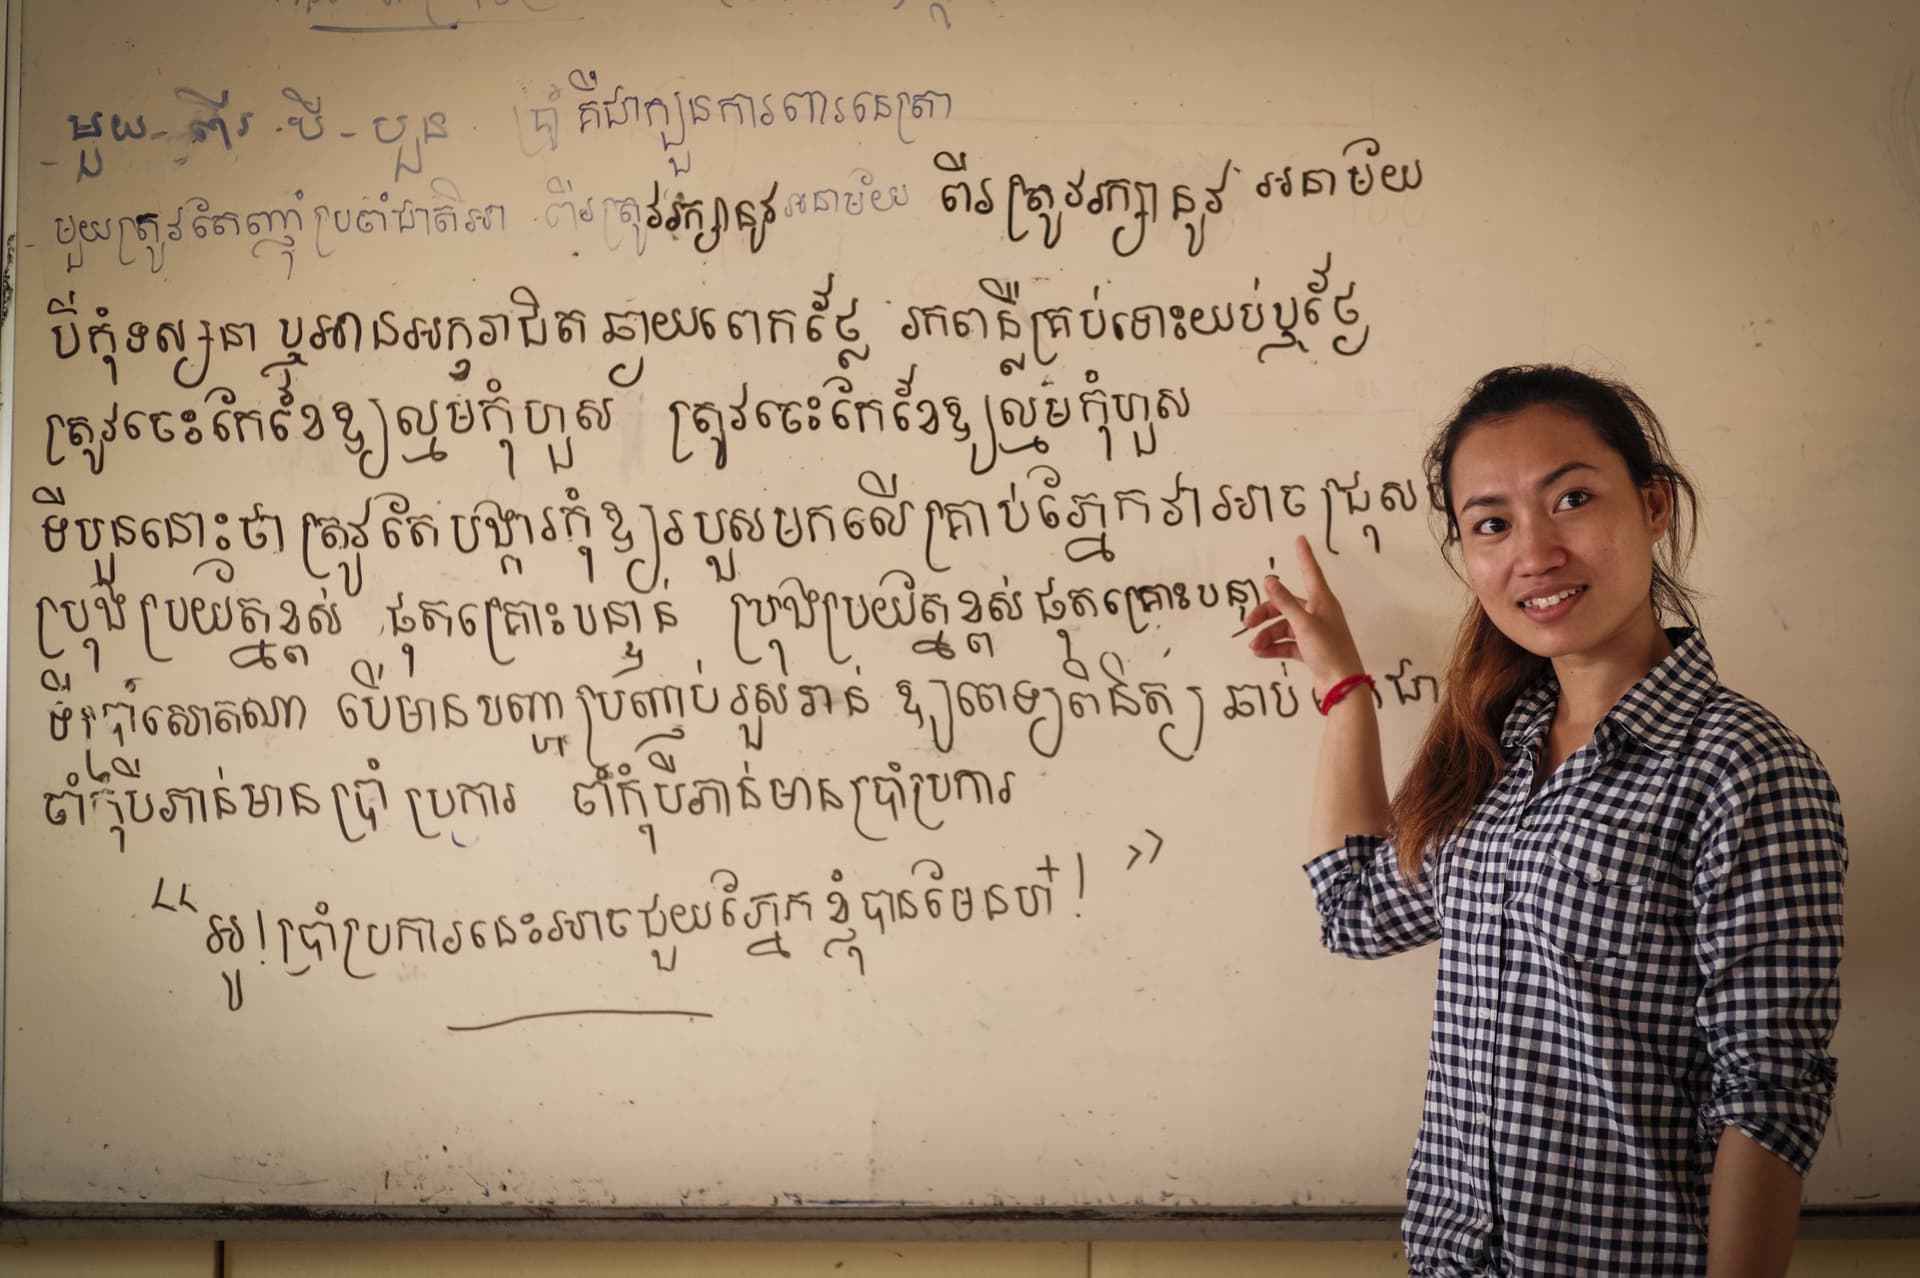 - មួយ - ពីរ បី - បួន ប្រាំ គឺជាក្បួនការពារនេត្រា
- មួយត្រូវតែញ៉ាំប្រចាំជាតិអា ពីរត្រូវរក្សានូវអនាម័យ ពីរត្រូវរក្សានូវ អនាម័យ
បីកុំទស្សនា ឬអានអក្សរាជិត ឆ្ងាយពេកថ្លៃ រកពន្លឺគ្រប់ទោះយប់ឬថ្ងៃ
ត្រូវចេះកែខៃឱ្យល្មមកុំហួស ត្រូវចេះកែខៃឱ្យល្មមកុំហួស
ទីបួននោះថា ត្រូវតែបង្ការកុំឱ្យរបួសមកលើគ្រាប់ភ្នែកវាអាច ជ្រុស
ប្រុងប្រយ័ត្នខ្ពស់ ផុតគ្រោះបន្ទាន់ ប្រុងប្រយ័ត្នខ្ពស់ផុតគ្រោះបន្ទាន់
ទីប្រាំសោតណា បើមានបញ្ហាប្រញាប់រួសរាន់ ឱ្យពេទ្យពិនិត្យ ឆាប់ ជា
ចាំកុំបីភាន់មាន ប្រាំ ប្រការ ចាំកុំបីភាន់មានប្រាំប្រការ
“ អូ! ប្រាំប្រការនេះអាចជួយភ្នែកខ្ញុំបានមែនហ៎! ”